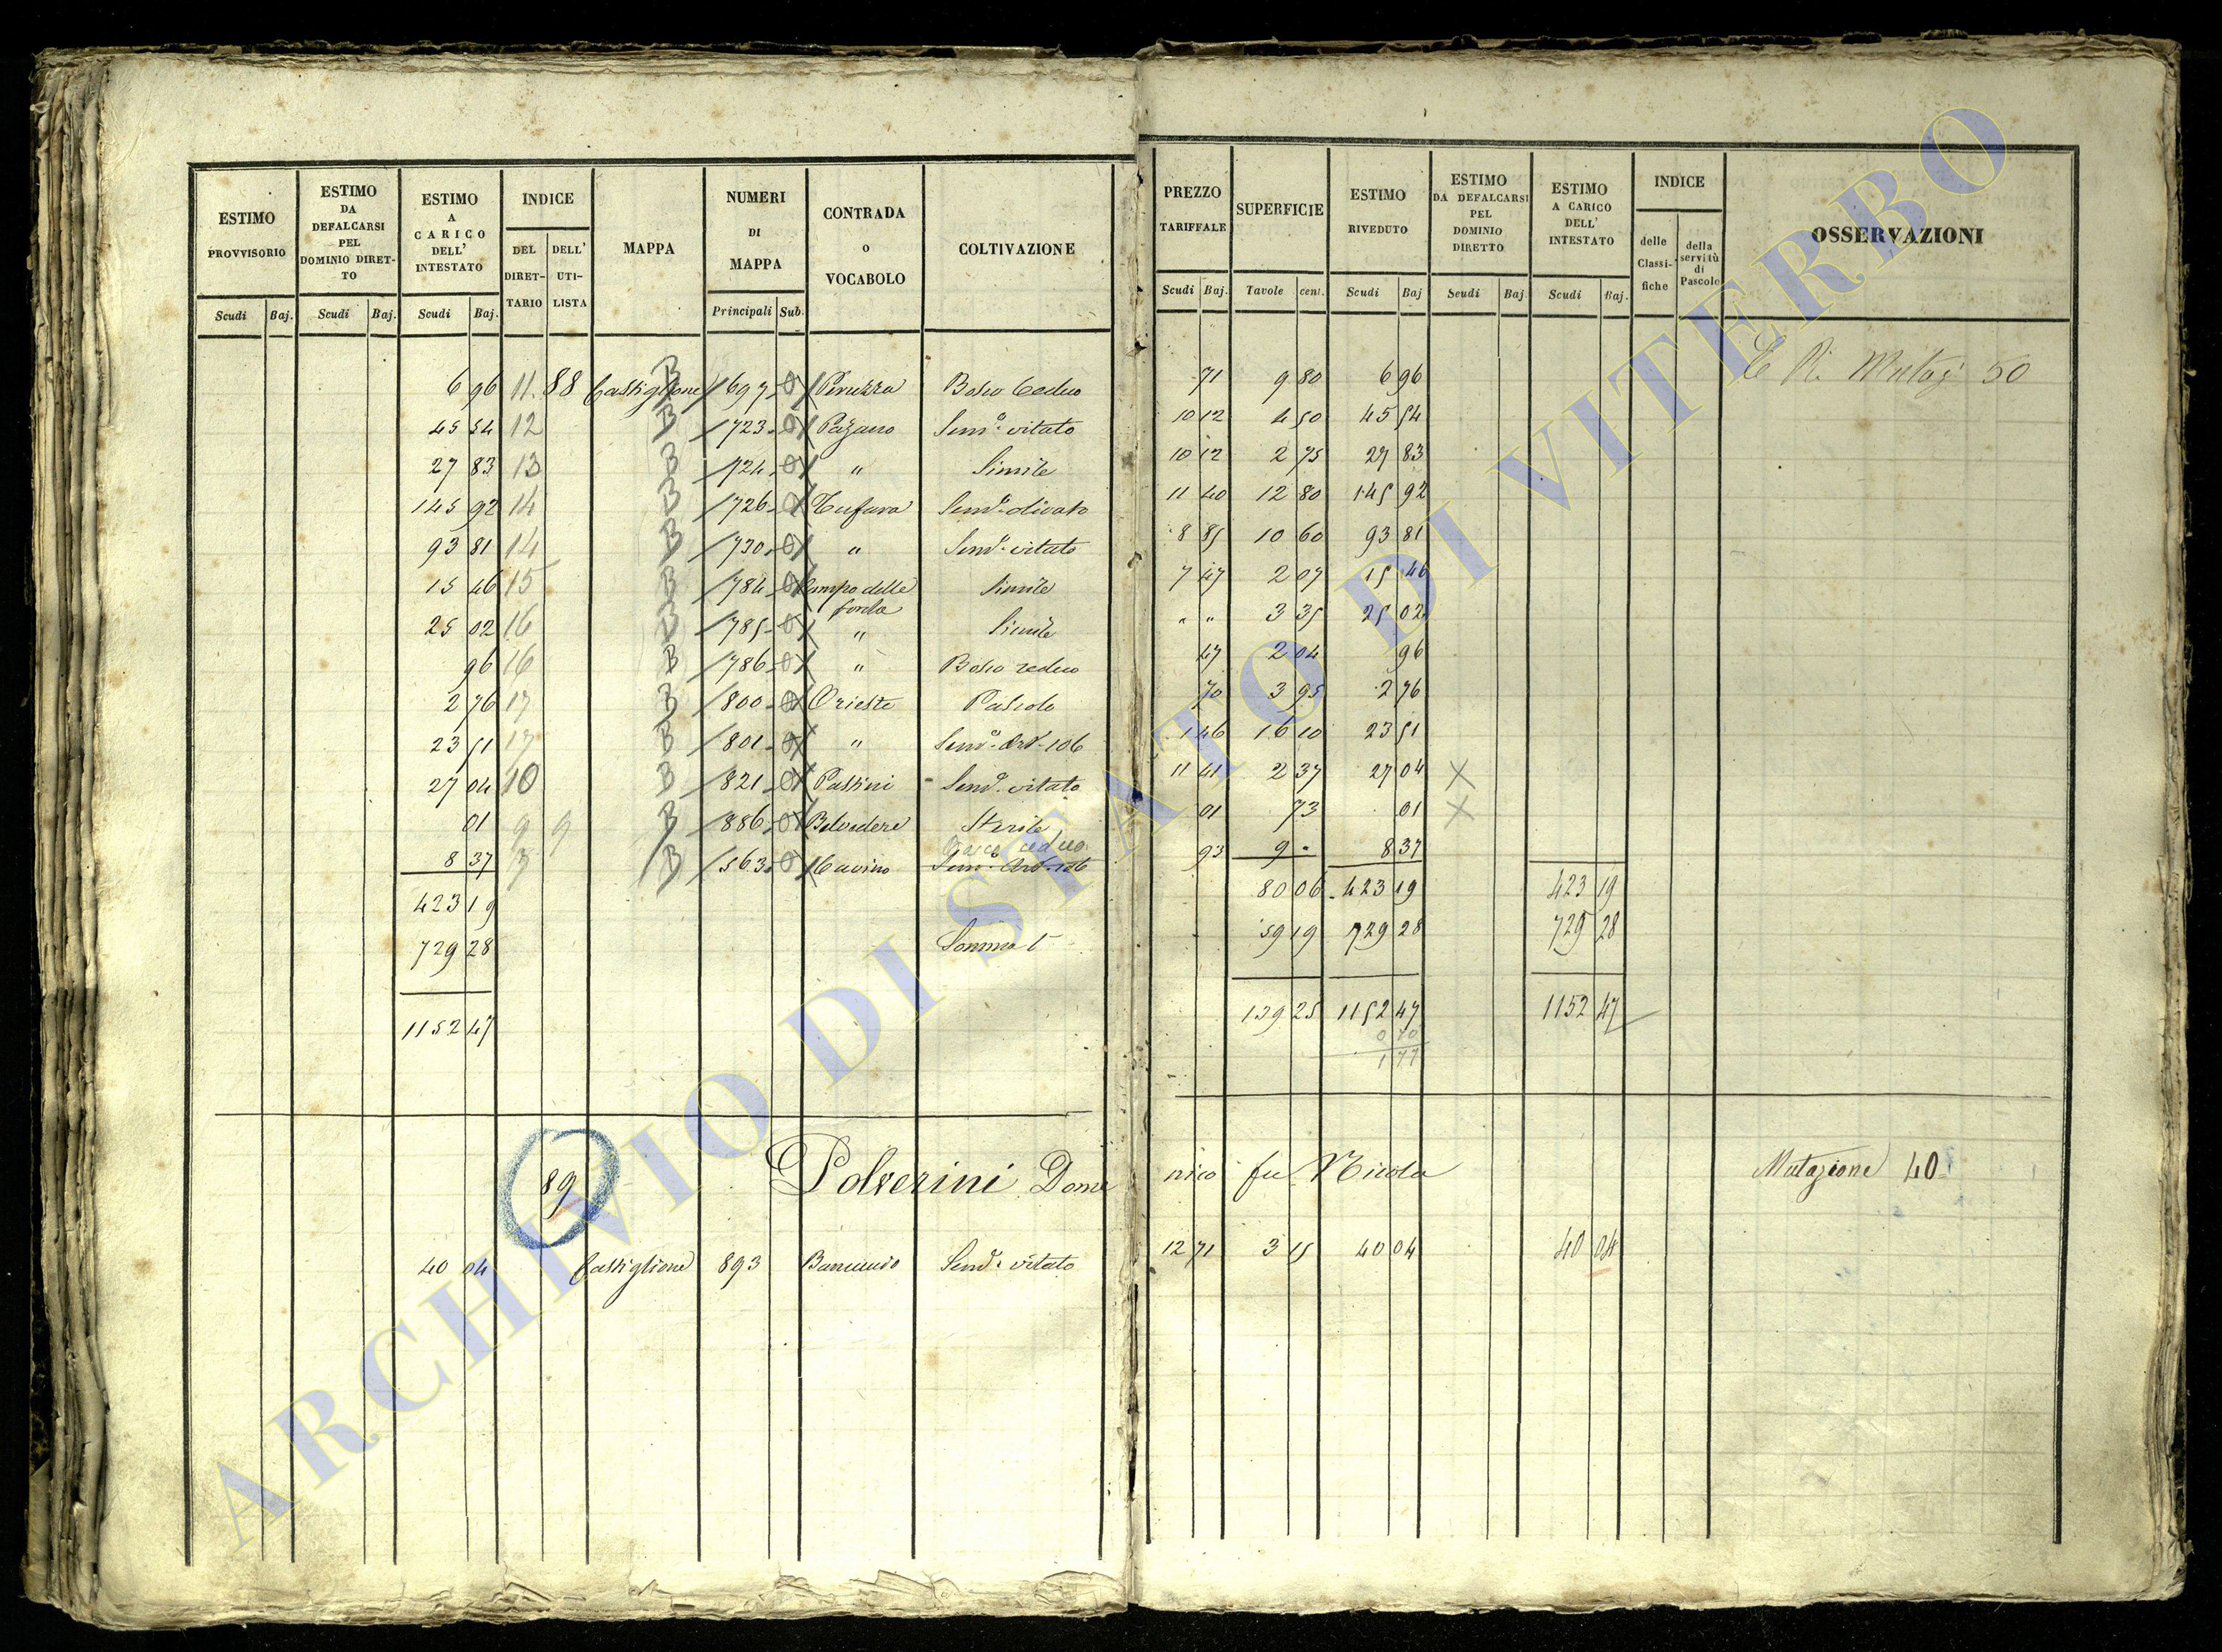 ESTIMO PROVVISORIO
ESTIMO DA DEFALCARSI PEL DOMINIO DIRET-TO
ESTIMO A CARICO DELL' INTESTATO
INDICE
DEL DIRET-TARIO
DELL' UTI-LISTA
MAPPA
NUMERI DI MAPPA
CONTRADA o VOCABOLO
COLTIVAZIONE
Scudi Baj. Scudi Baj. Scudi Baj. Principali Sub.
PREZZO TARIFFALE
SUPERFICIE
ESTIMO RIVEDUTO
ESTIMO DA DEFALCARSI PEL DOMINIO DIRETTO
ESTIMO A CARICO DELL' INTESTATO
INDICE
delle Classi-fiche
della servitù di Pascolo
OSSERVAZIONI
Scudi Baj. Tavole cent. Scudi Baj Scudi Baj. Scudi Baj.
6 96 11. 88 Castiglione B 697 0 Peruzza Bosco Ceduo 71 9 80 6 96 Mutaz 50
45 54 12 B 723 0 Pazzano Semo. vitato 10 12 4 50 45 54
27 83 13 B 724 0 " Simile 10 12 2 75 27 83
145 92 14 B 726 0 Semo. olivato 11 40 12 80 145 92
93 81 14 B 730 0 " Semo. vitato 8 85 10 60 93 81
15 46 15 B 784 0 Campo delle Simile 7 47 2 07 15 46
25 02 16 B 785 0 " Simile " " 3 35 25 02
96 16 B 786 0 " Bosco ceduo 47 2 04 96
2 76 17 B 800 0 Orieste Pascolo 70 3 95 2 76
23 51 17 B 801 0 " Semo. Arb. 106 1 46 16 10 23 51
27 04 10 B 821 0 Passini Semo. vitato 11 41 2 37 27 04 X
01 9 9 B 886 0 Belvedere Sterile 01 73 01 X
Bosco ceduo
8 37 3 B 563 0 Cavino Semo. Arb. 106 93 9 " 8 37
423 19 80 06 423 19 423 19
729 28 Somma 59 19 729 28 729 28
1152 47 139 25 1152 47 1152 47
0 70
1 77
89 Polverini Dome nico fu Nicola Mutazione 40
40 04 Castiglione 893 Semo. vitato 12 71 3 15 40 04 40 04
ARCHIVIO DI STATO DI VITERBO